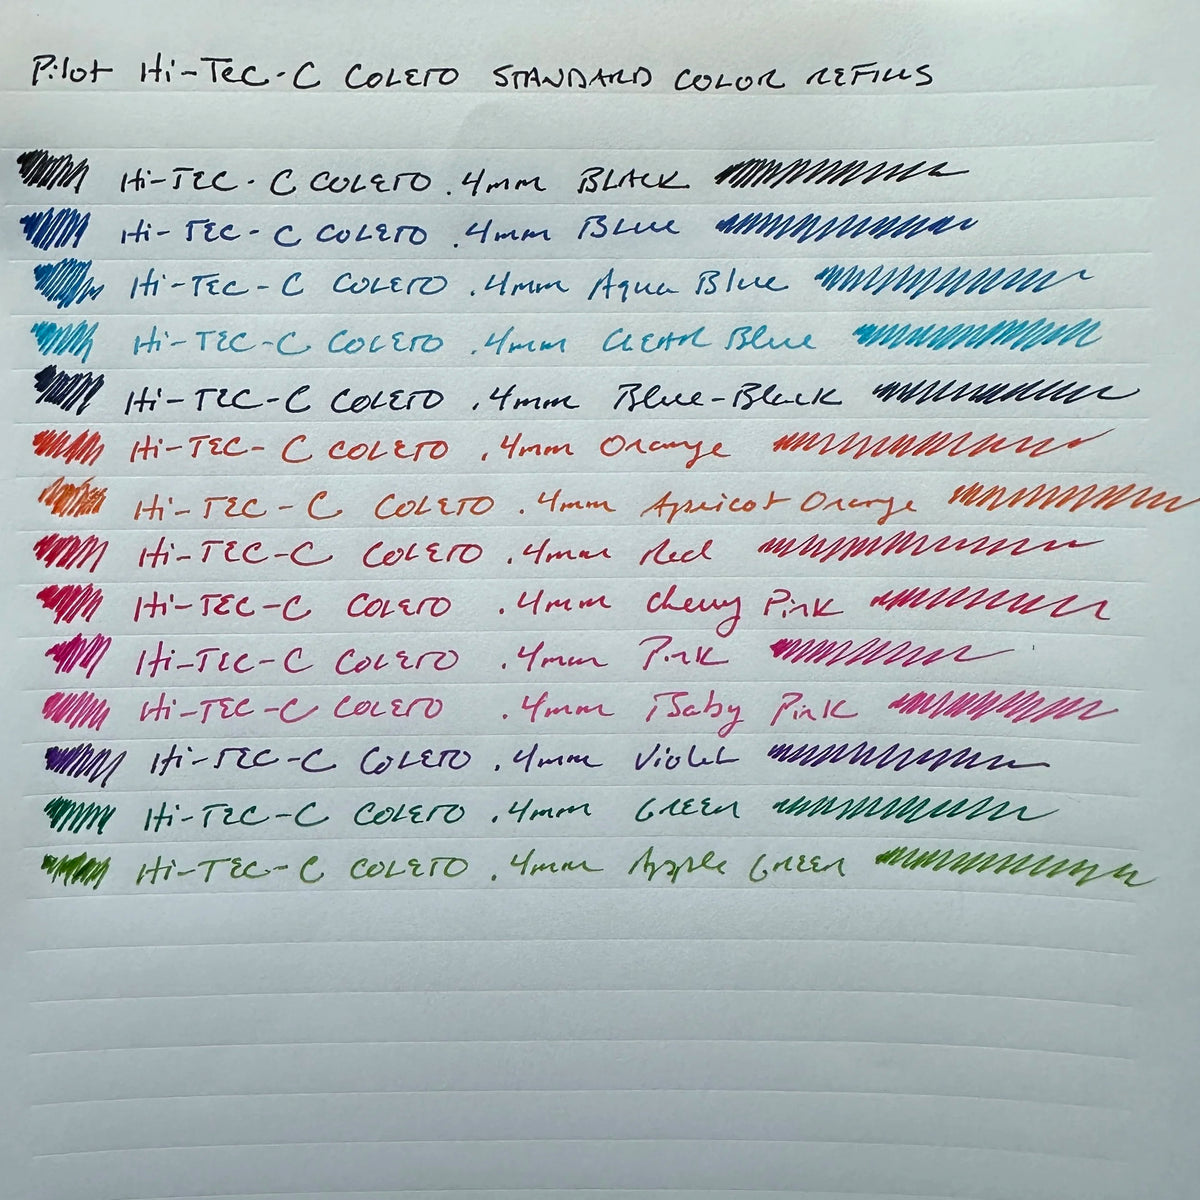 Pilot Hi-Tec-C COLETO STANDARD COLOR REFILLS
Hi-TEC-C COLETO .4mm BLACK
Hi-TEC-C COLETO .4mm BLUE
Hi-TEC-C COLETO .4mm Aqua Blue
Hi-TEC-C COLETO .4mm CLEAR Blue
Hi-TEC-C COLETO .4mm Blue-Black
Hi-TEC-C COLETO .4mm Orange
Hi-TEC-C COLETO .4mm Apricot Orange
Hi-TEC-C COLETO .4mm Red
Hi-TEC-C COLETO .4mm Cherry Pink
Hi-TEC-C COLETO .4mm Pink
Hi-TEC-C COLETO .4mm Baby Pink
Hi-TEC-C COLETO .4mm Violet
Hi-TEC-C COLETO .4mm GREEN
Hi-TEC-C COLETO .4mm Apple GREEN